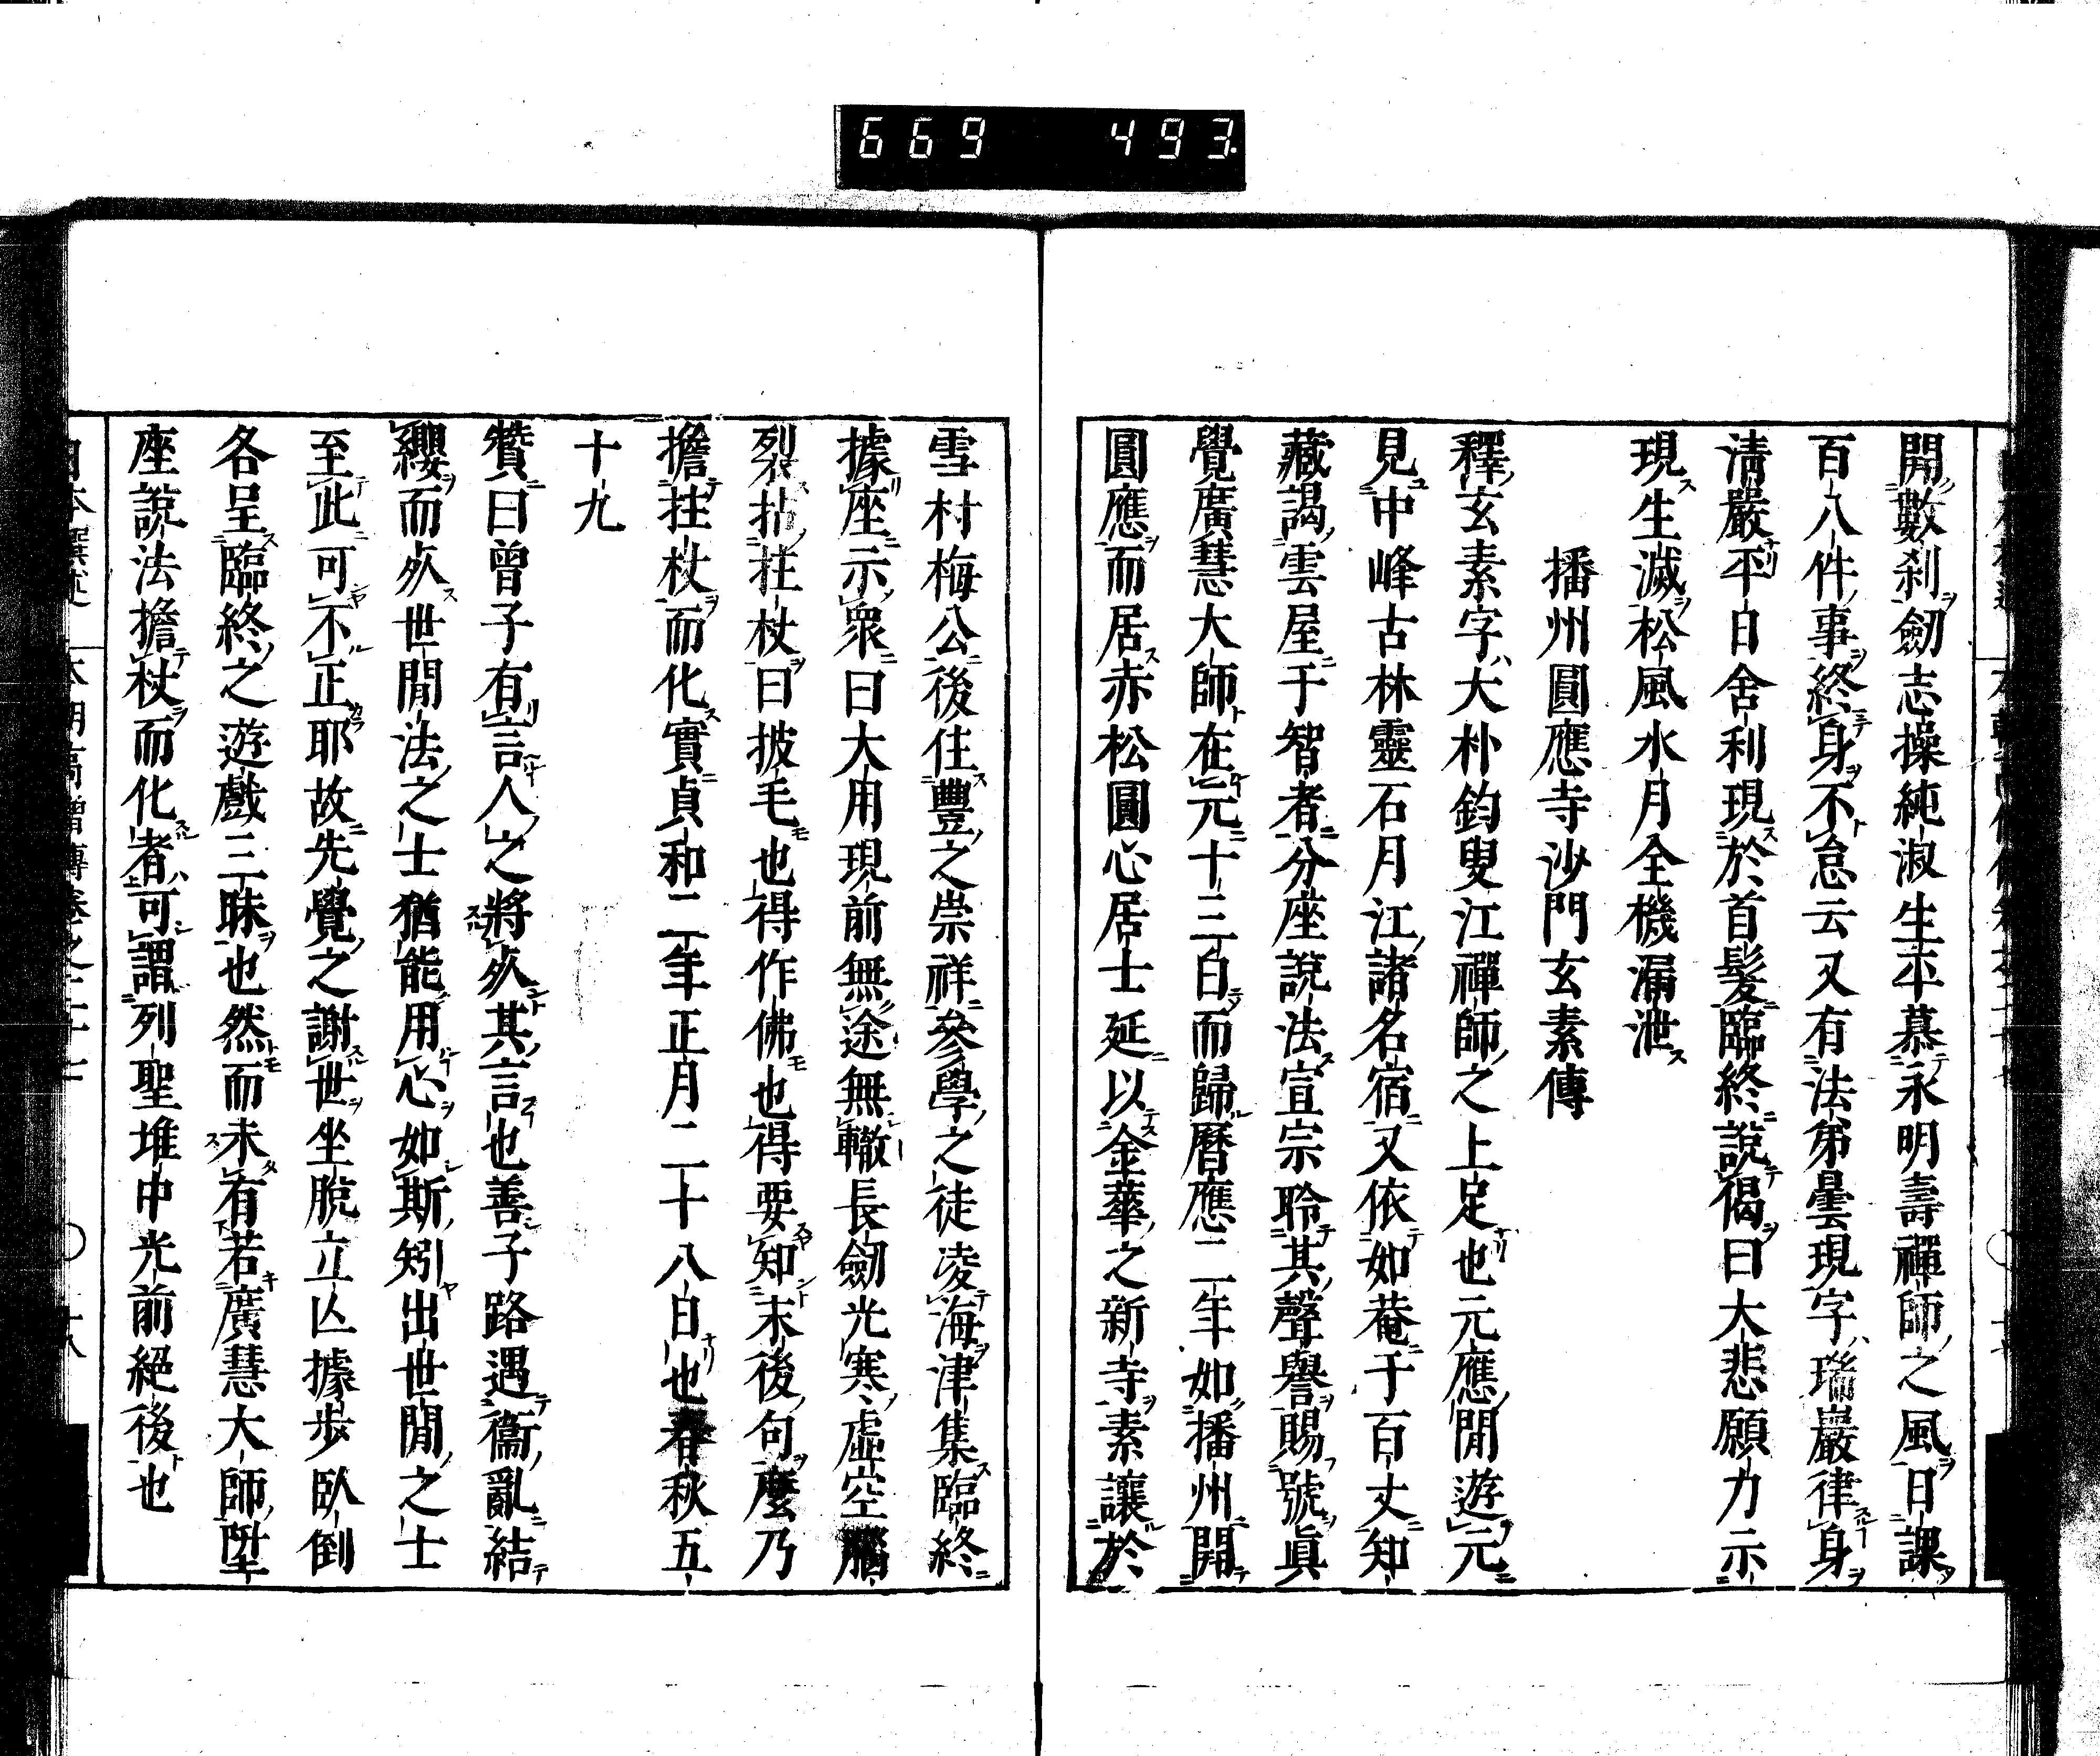 669 493.
開數刹劒志操純淑生平慕永明壽禪師之風日課
百八件事終身不怠云又有法弟曇現字瑞巖律身
清嚴平日舍利現於首髮臨終說偈曰大悲願力示
現生滅松風水月全機漏泄
播州圓應寺沙門玄素傳
釋玄素字大朴鈞叟江禪師之上足也元應閒遊元
見中峰古林靈石月江諸名宿又依如菴于百丈知
藏謁雲屋于智者分座說法宣宗聆其聲譽賜號眞
覺廣慧大師在元十三白而歸曆應二年如播州開
圓應而居赤松圓心居士延以金華之新寺素讓於
雪村梅公後住豐之崇祥參學之徒凌海津集臨終
據座示衆曰大用現前無途無轍長劒光寒虛空腦
裂拈拄杖曰披毛也得作佛也得要知末後句麼乃
擔拄杖而化實貞和二年正月二十八日也春秋五
十九
贊曰曾子有言人之將死其言也善子路遇衞亂結
纓而死世閒法之士猶能用心如斯矧出世閒之士
至此可不正耶故先覺之謝世坐脫立亾據步臥倒
各呈臨終之遊戲三昧也然而未有若廣慧大師陞
座說法擔杖而化者可謂列聖堆中光前絕後也